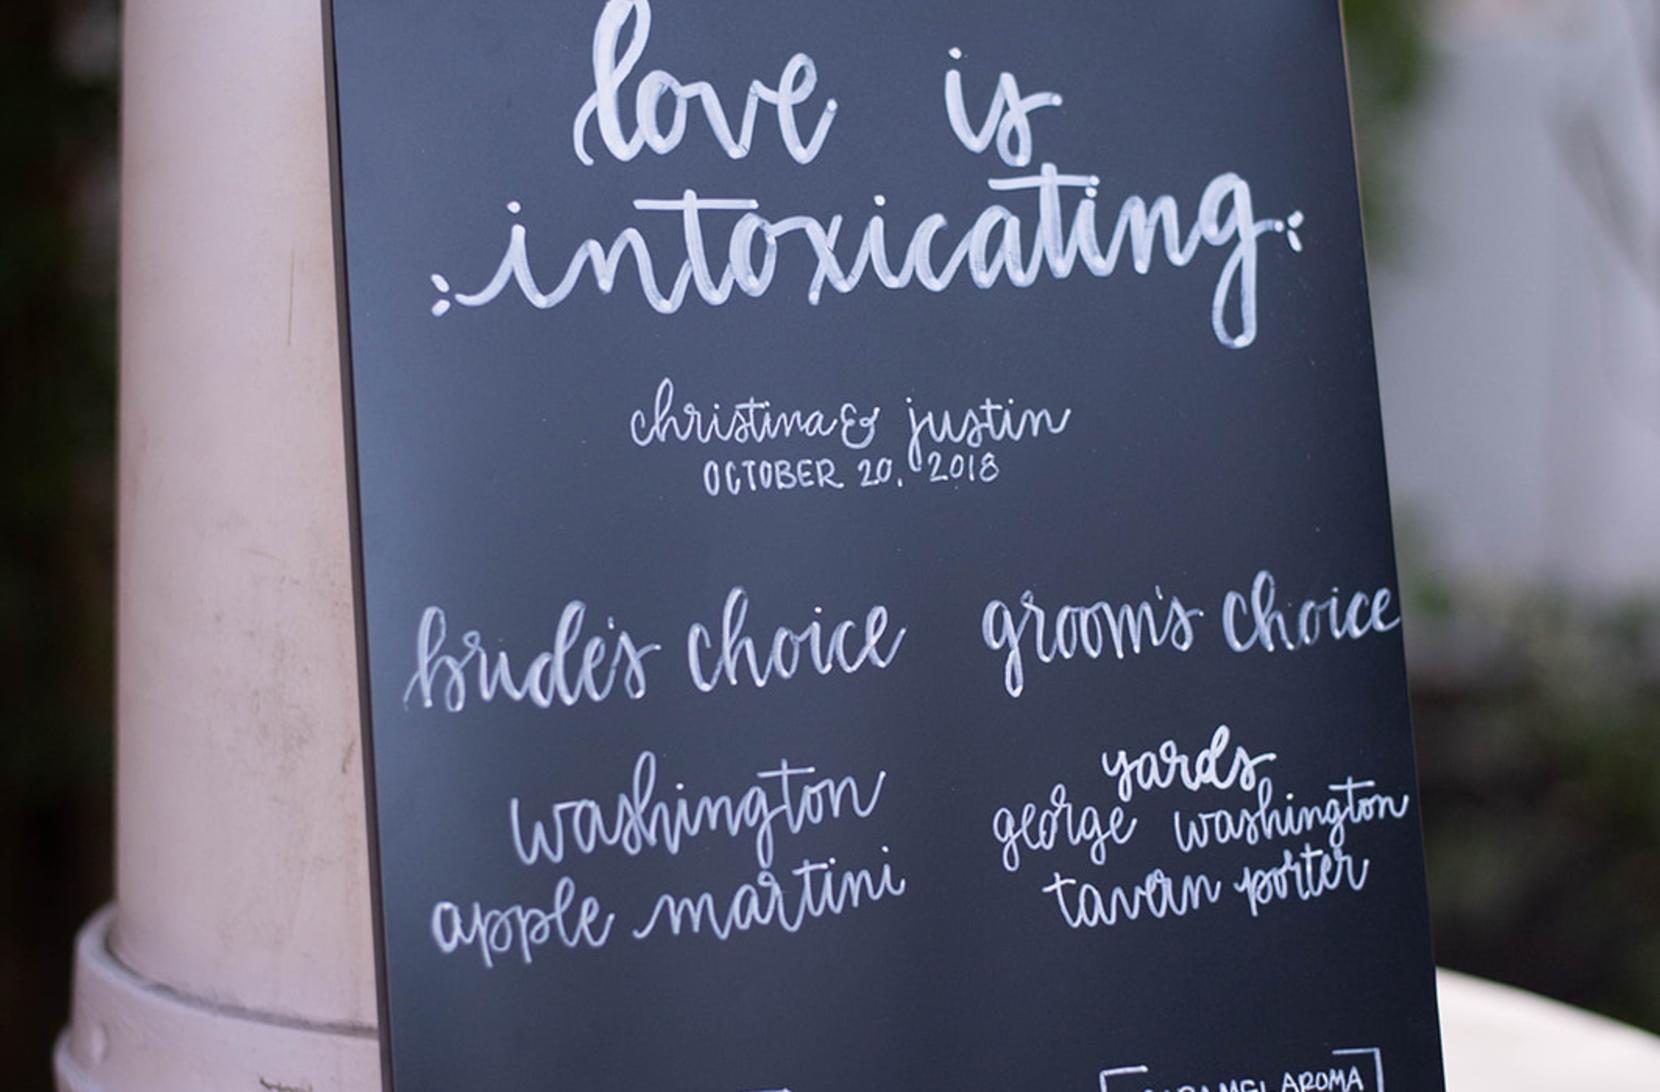 love is
intoxicating
christina & justin
OCTOBER 20, 2018
bride's choice
washington
apple martini
groom's choice
yards
george washington
tavern porter
AROMA